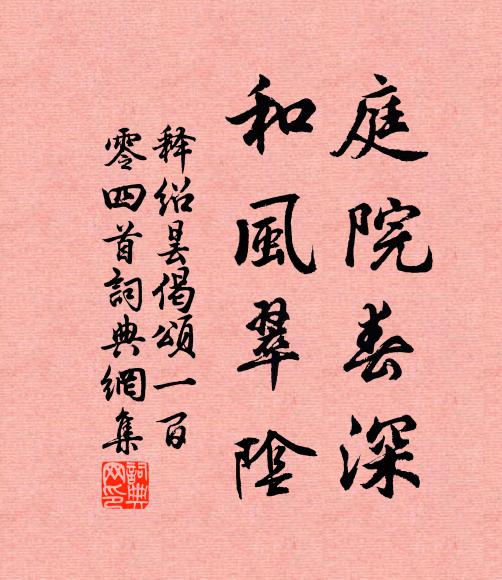 庭院春深
和風翠陰
释紹昙偈頌一百
零四首詞典網集
詞典网印